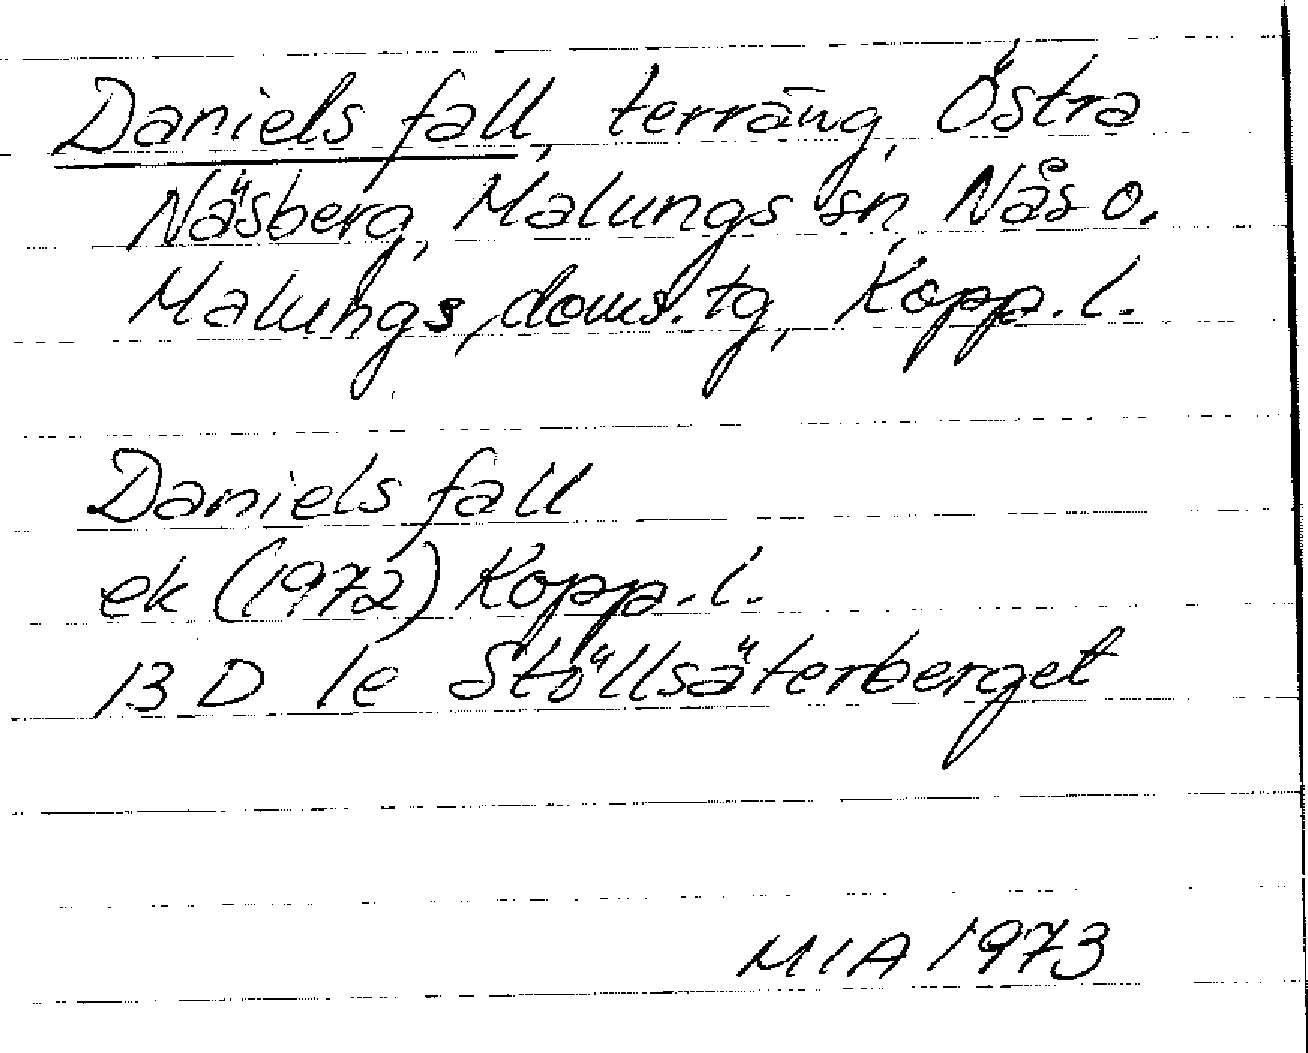 Daniels fall, terräng, Östra
Näsberg, Malungs sn, Nås o.
Malungs, doms. tg, Kopp. l.
Daniels fall
ek (1972) Kopp. l.
13 D 1e Stöllsäterberget
MIA 1973